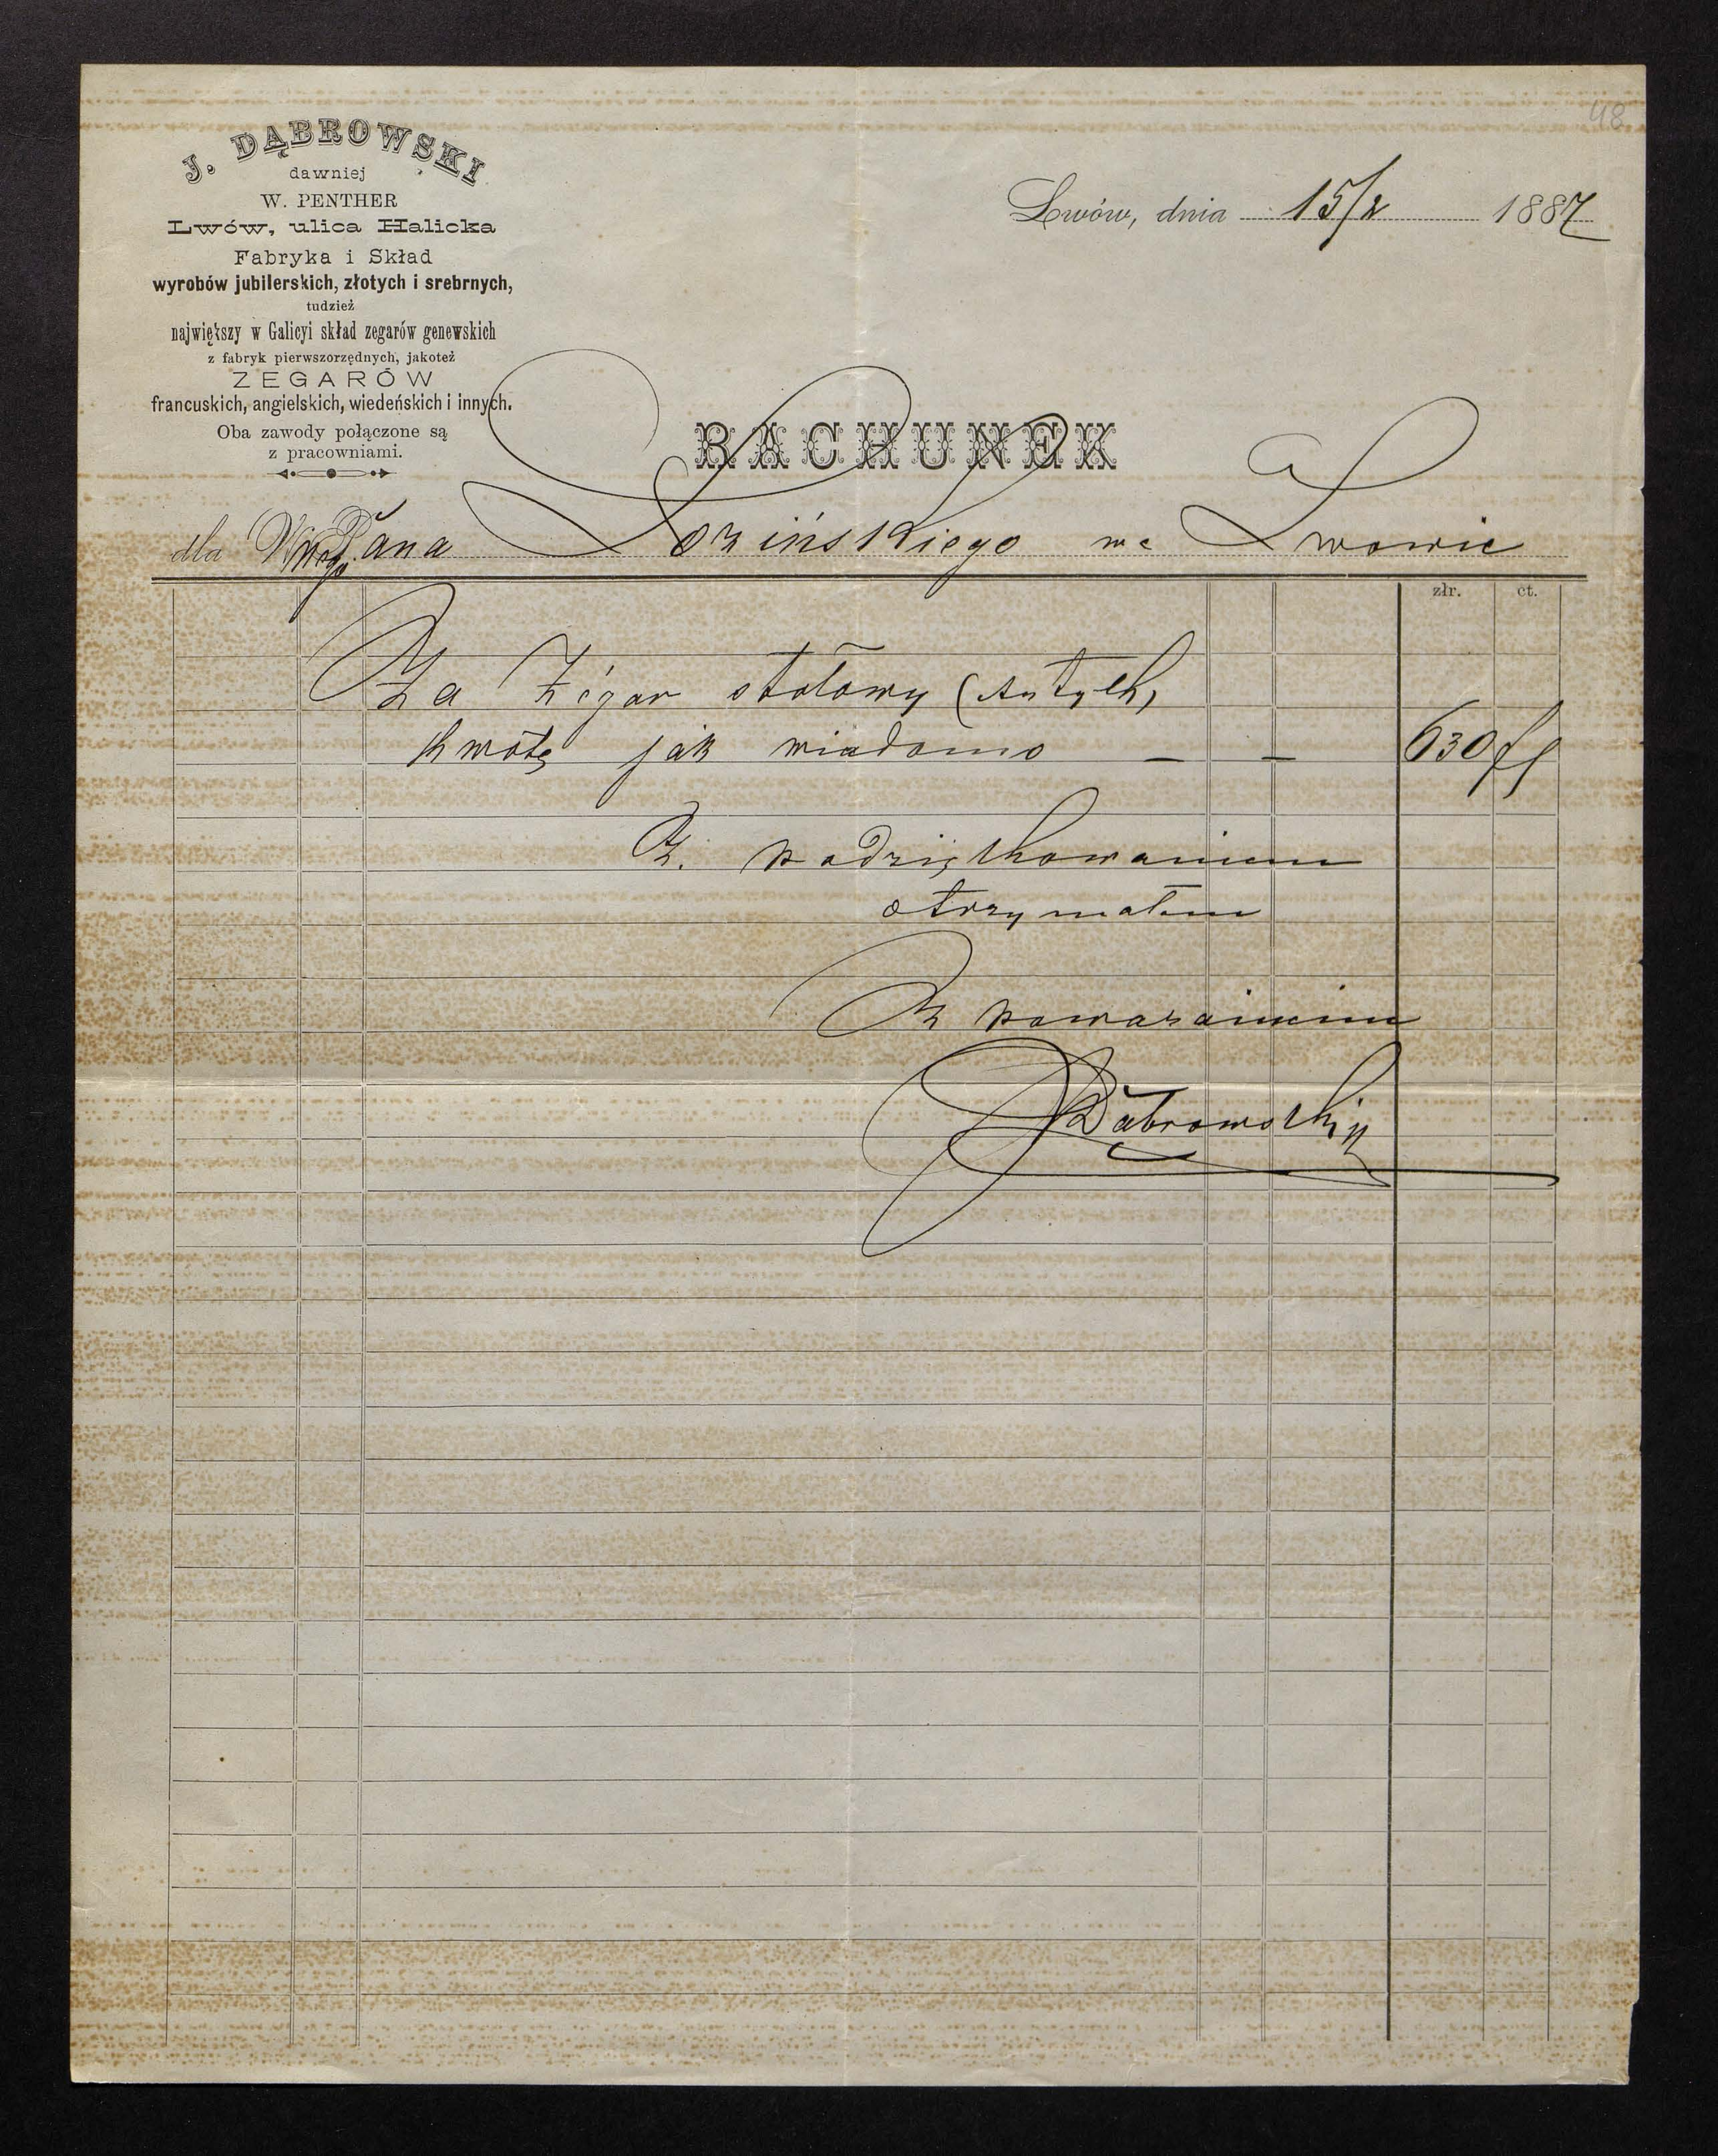 48
J. DĄBROWSKI
dawniej
W. PENTHER
Lwów, ulica Halicka
Fabryka i Skład
wyrobów jubilerskich, złotych i srebrnych,
tudzież
największy w Galicyi skład zegarów genewskich
z fabryk pierwszorzędnych, jakoteż
ZEGARÓW
francuskich, angielskich, wiedeńskich i innych.
Oba zawody połączone są
z pracowniami.
Lwów, dnia 15/2 1887
RACHUNEK
dla Pana Łozińskiego we Lwowie
złr. ct.
Za Zégar stołowy (Antyk)
kwotę jak wiadomo — — 630 fl
Z. podziękowaniem
otrzymałem
Z powarzaniem
JDąbrowski